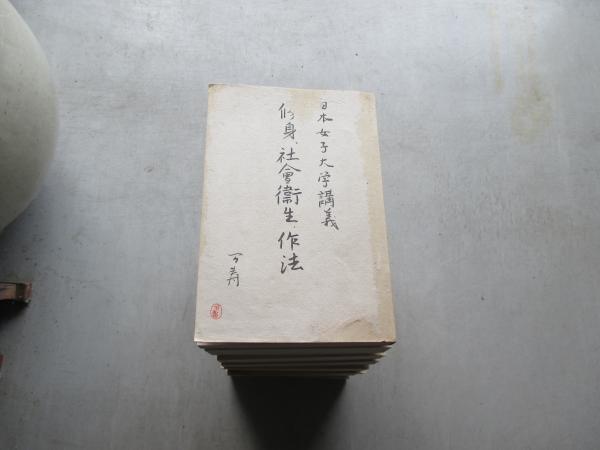 日本女子大学講義
修身、社會衞生、作法